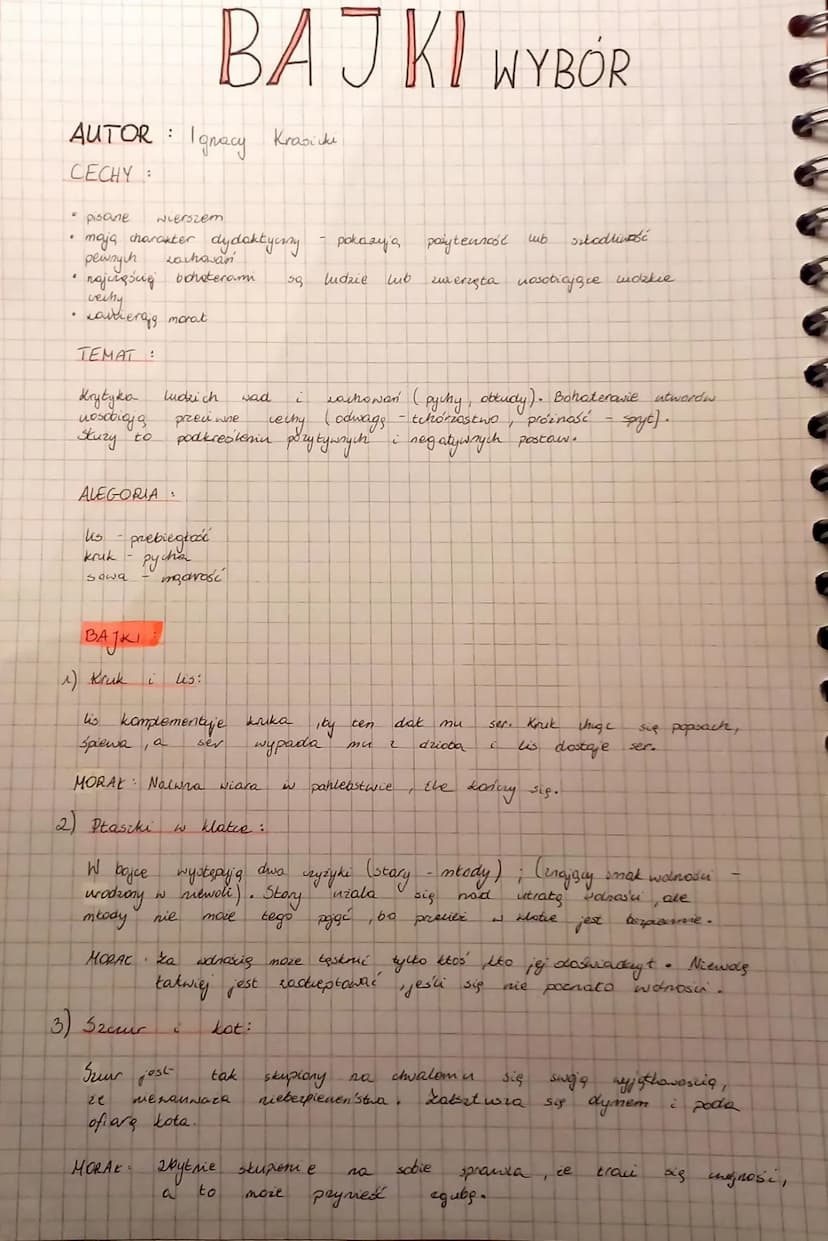 BAJKI WYBÓR
AUTOR : Ignacy Krasicki
CECHY :
• pisane wierszem
• mają charakter dydaktyczny - pokazują pożyteczność lub szkodliwość
pewnych zachowań
• najczęściej bohaterami są ludzie lub zwierzęta uosobiające ludzkie
cechy
• zawierają morał
TEMAT :
Krytyka ludzich wad i zachowań (pychy, obłudy). Bohaterowie utworów
uosobiają przeciwne cechy (odwagę - tchórzostwo, próżność - spryt).
Służy to podkreśleniu pozytywnych i negatywnych postaw.
ALEGORIA :
lis - przebiegłość
kruk - pycha
sowa - mądrość
BAJKI :
1) Kruk i lis:
lis komplementuje kruka, by ten dał mu ser. Kruk chcąc się popisać,
śpiewa, a ser wypada mu z dzioba i lis dostaje ser.
MORAŁ: Naiwna wiara w pochlebstwie, źle kończy się.
2) Ptaszki w klatce:
W bajce występują dwa czyżyki (stary - młody) ; (znający smak wolności -
urodzony w niewoli). Stary użala się nad utratą wolności, ale
młody nie może tego pojąć, bo przecież w klatce jest bezpiecznie.
MORAŁ: Za wolnością może tęsknić tylko ktoś, kto jej doświadczył. Niewolę
łatwiej jest zaakceptować, jeśli się nie poznało wolności.
3) Szczur i kot:
Szczur jest tak skupiony na chwaleniu się swoją wyjątkowością,
że niezauważa niebezpieczeństwa. Zakrztusza się dymem i pada
ofiarą kota.
MORAŁ: Zbytnie skupienie na sobie sprawia, że traci się czujność,
a to może przynieść zgubę.